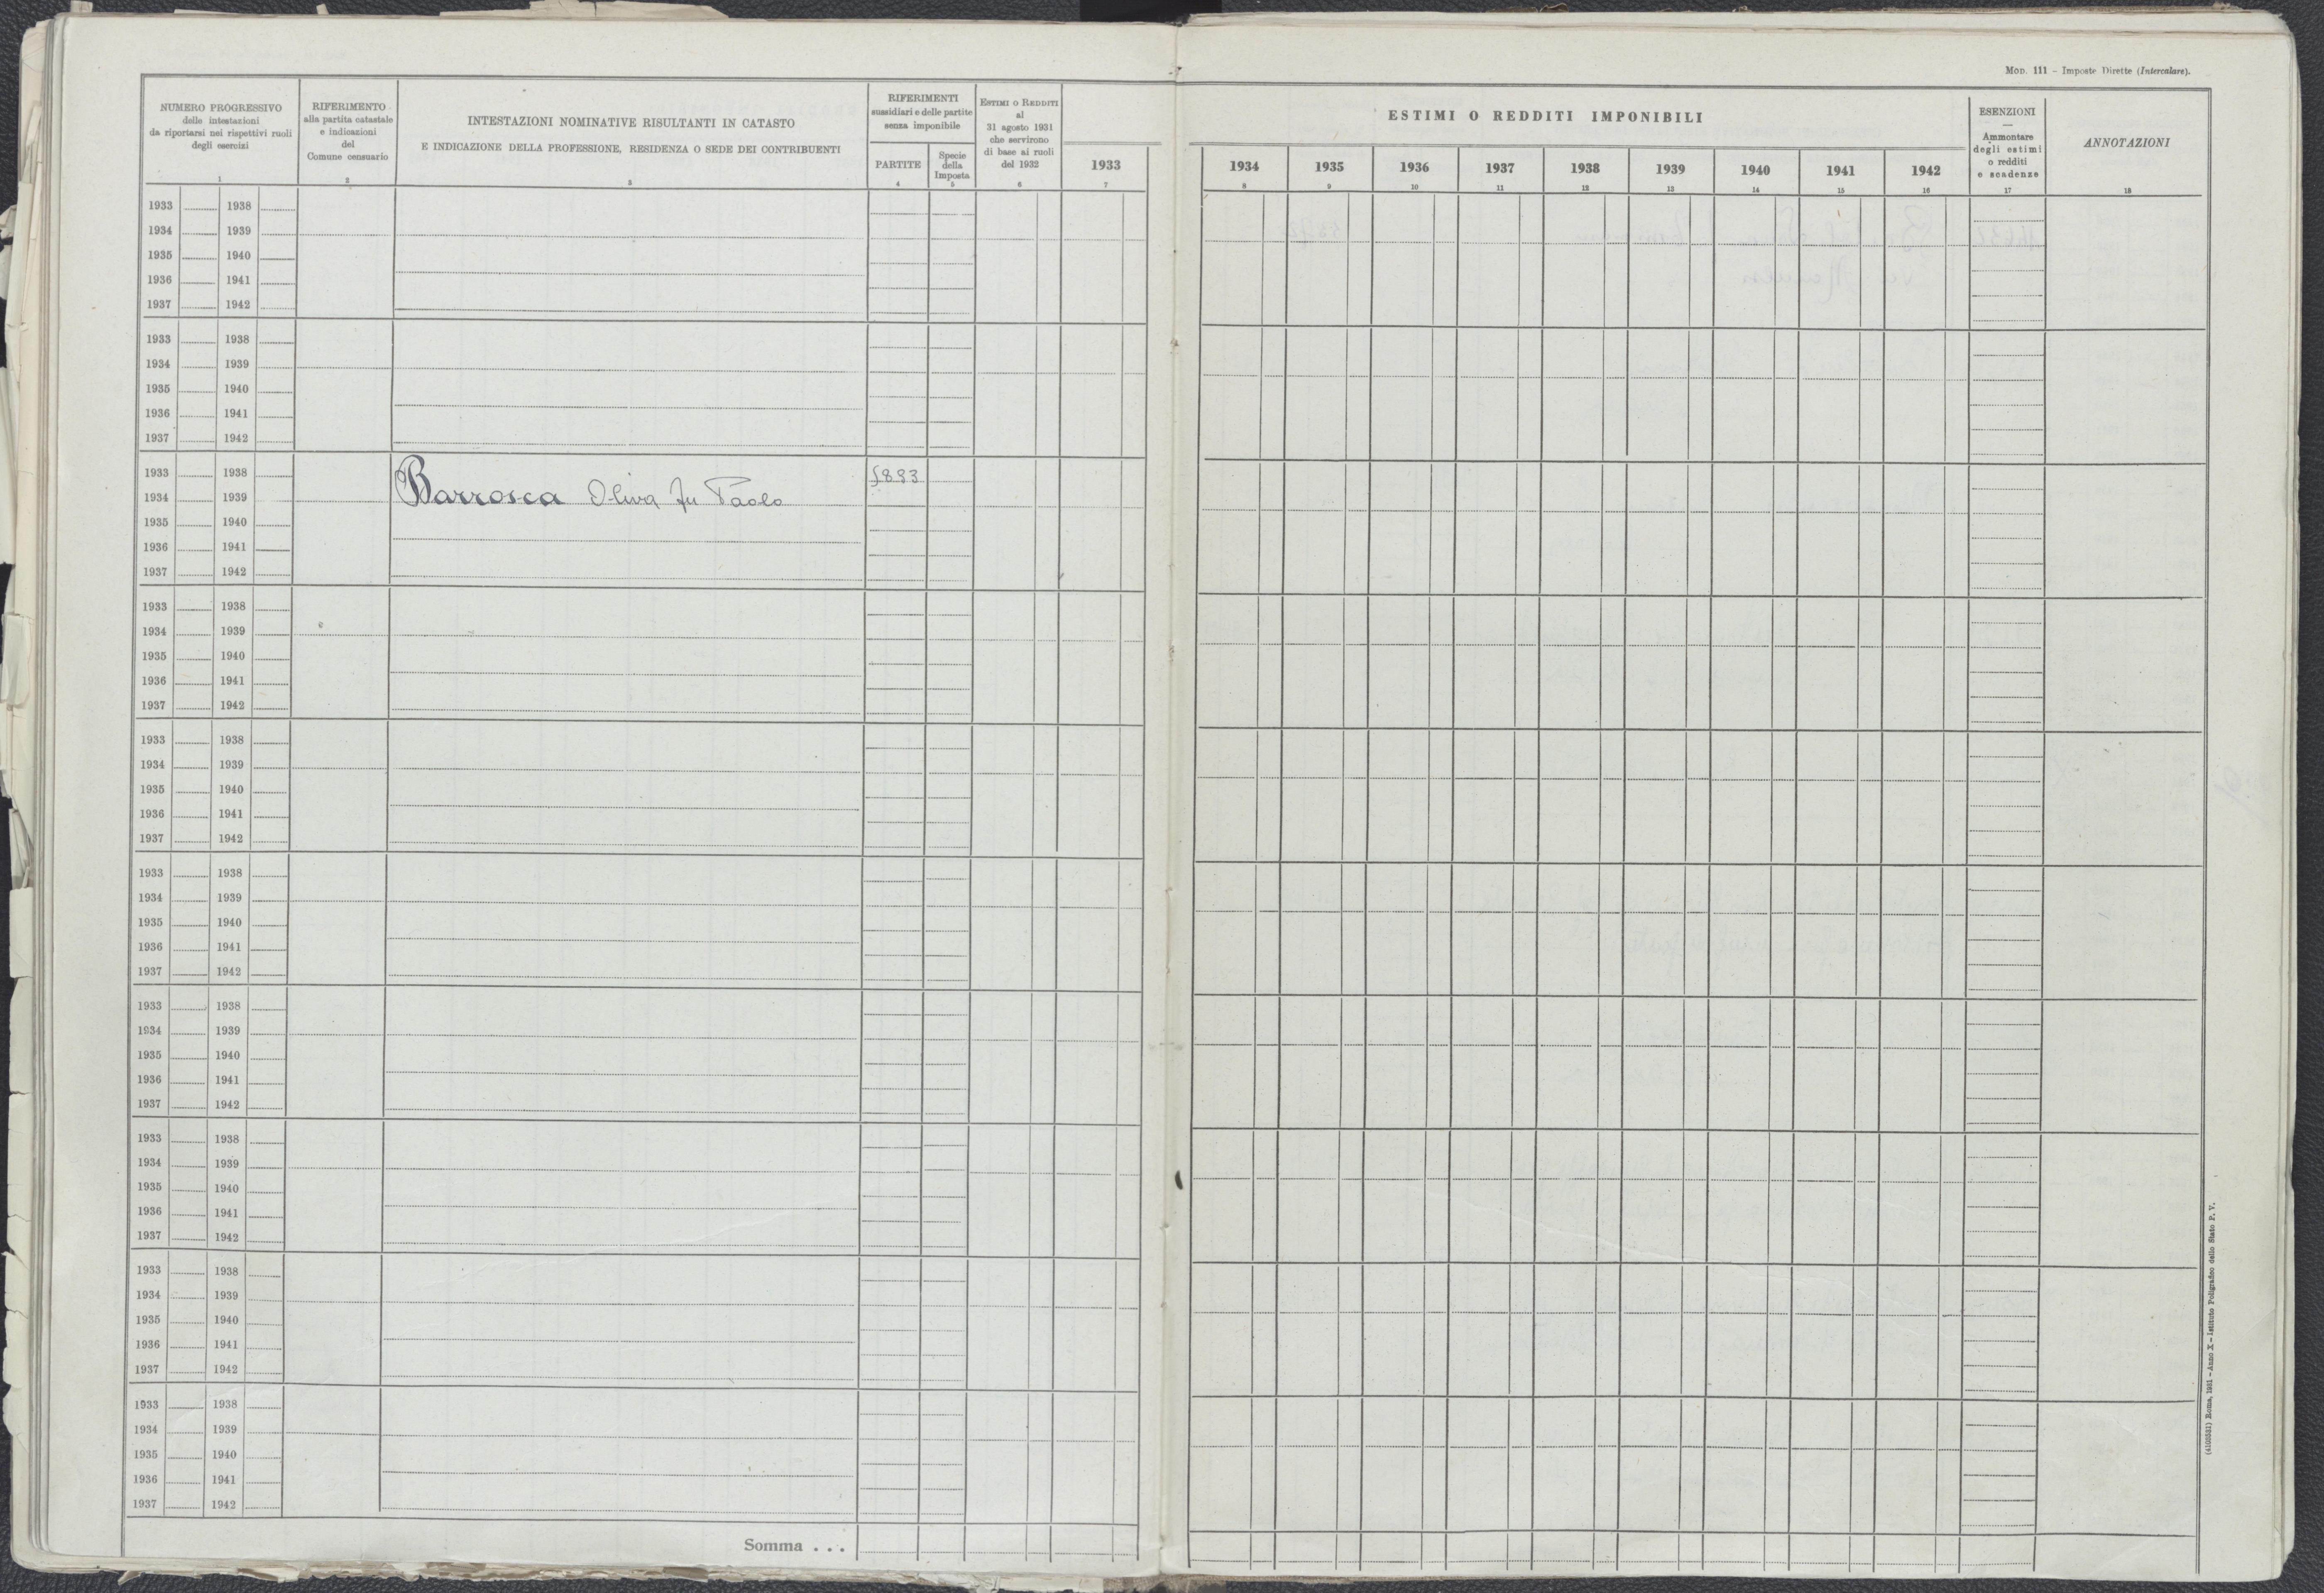 MOD. 111 – Imposte Dirette (Intercalare).
NUMERO PROGRESSIVO
delle intestazioni
da riportarsi nei rispettivi ruoli
degli esercizi
1
RIFERIMENTO
alla partita catastale
e indicazioni
del
Comune censuario
2
INTESTAZIONI NOMINATIVE RISULTANTI IN CATASTO
E INDICAZIONE DELLA PROFESSIONE, RESIDENZA O SEDE DEI CONTRIBUENTI
3
RIFERIMENTI
sussidiari e delle partite
senza imponibile
PARTITE
4
Specie
della
Imposta
5
ESTIMI O REDDITI
al
31 agosto 1931
che servirono
di base ai ruoli
del 1932
6
1933
7
ESTIMI O REDDITI IMPONIBILI
1934 1935 1936 1937 1938 1939 1940 1941 1942
8 9 10 11 12 13 14 15 16
ESENZIONI
—
Ammontare
degli estimi
o redditi
e scadenze
17
ANNOTAZIONI
18
1933 1938
1934 1939
1935 1940
1936 1941
1937 1942
1933 1938
1934 1939
1935 1940
1936 1941
1937 1942
1933 1938
1934 1939 Barrosca Oliva fu Paolo
1935 1940
1936 1941
1937 1942
1933 1938
1934 1939
1935 1940
1936 1941
1937 1942
1933 1938
1934 1939
1935 1940
1936 1941
1937 1942
1933 1938
1934 1939
1935 1940
1936 1941
1937 1942
1933 1938
1934 1939
1935 1940
1936 1941
1937 1942
1933 1938
1934 1939
1935 1940
1936 1941
1937 1942
1933 1938
1934 1939
1935 1940
1936 1941
1937 1942
1933 1938
1934 1939
1935 1940
1936 1941
1937 1942
Somma . . .
Roma, 1931 – Anno X – Istituto Poligrafico dello Stato P. V.